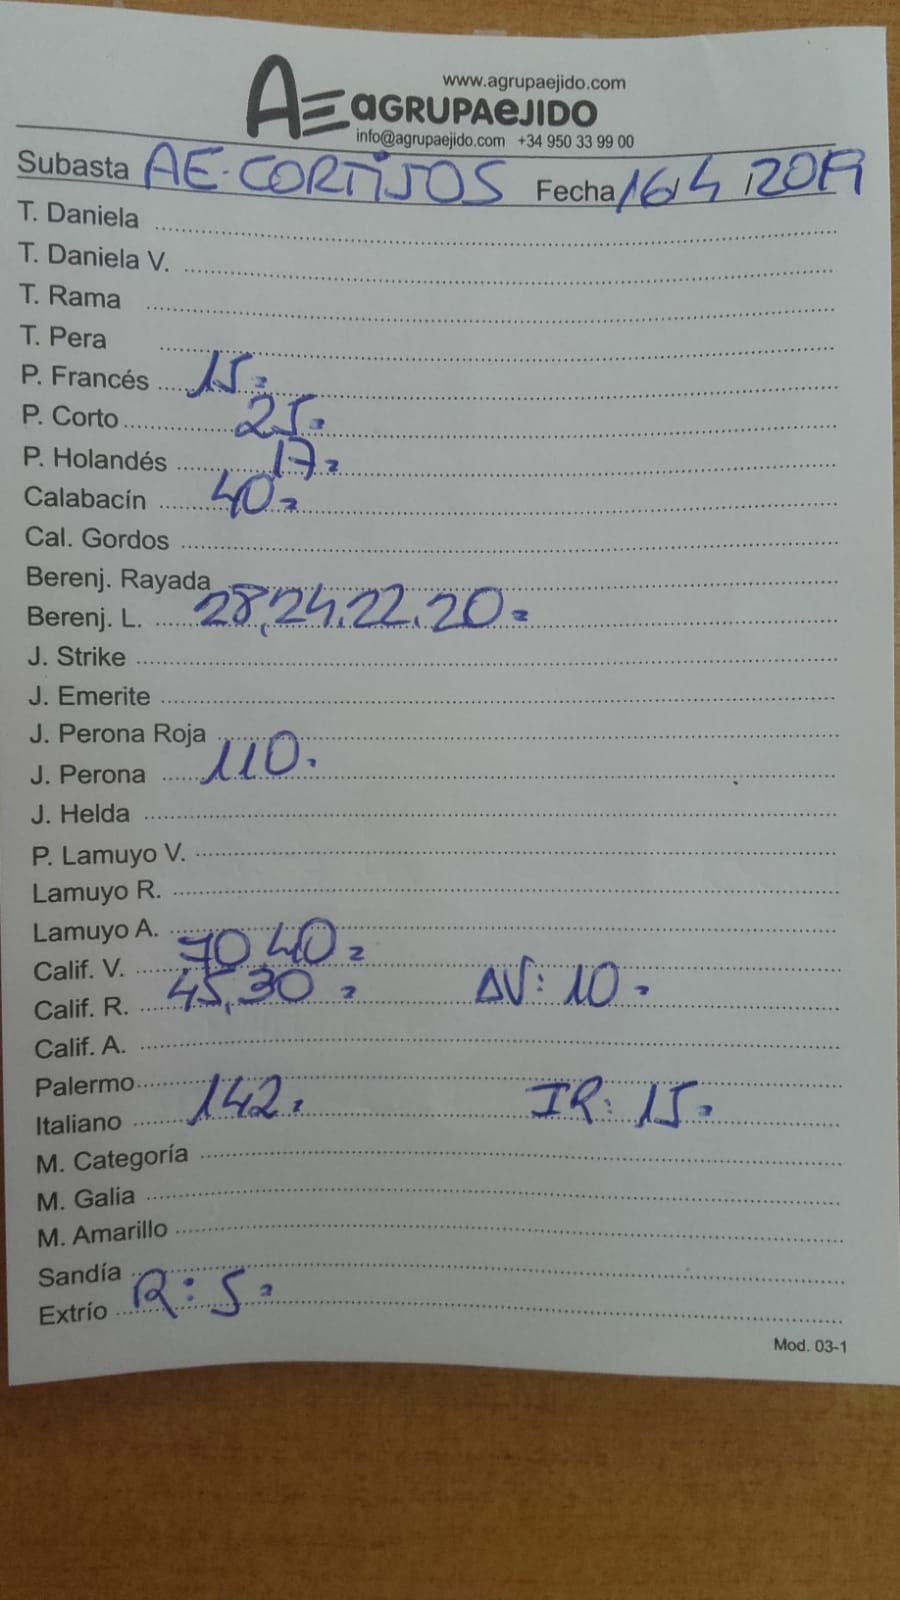 www.agrupaejido.com
AE aGRUPAeJIDO
info@agrupaejido.com +34 950 33 99 00
Subasta AE-CORTIJOS Fecha 16/4/2019
T. Daniela
T. Daniela V.
T. Rama
T. Pera
P. Francés 15=
P. Corto 25=
P. Holandés 17=
Calabacín 40=
Cal. Gordos
Berenj. Rayada
Berenj. L. 28,24,22,20=
J. Strike
J. Emerite
J. Perona Roja
J. Perona 110.
J. Helda
P. Lamuyo V.
Lamuyo R.
Lamuyo A.
Calif. V. 70,40=
Calif. R. 45,30= AV: 10=
Calif. A.
Palermo
Italiano 142= IR: 15=
M. Categoría
M. Galia
M. Amarillo
Sandía
Extrío R: 5=
Mod. 03-1